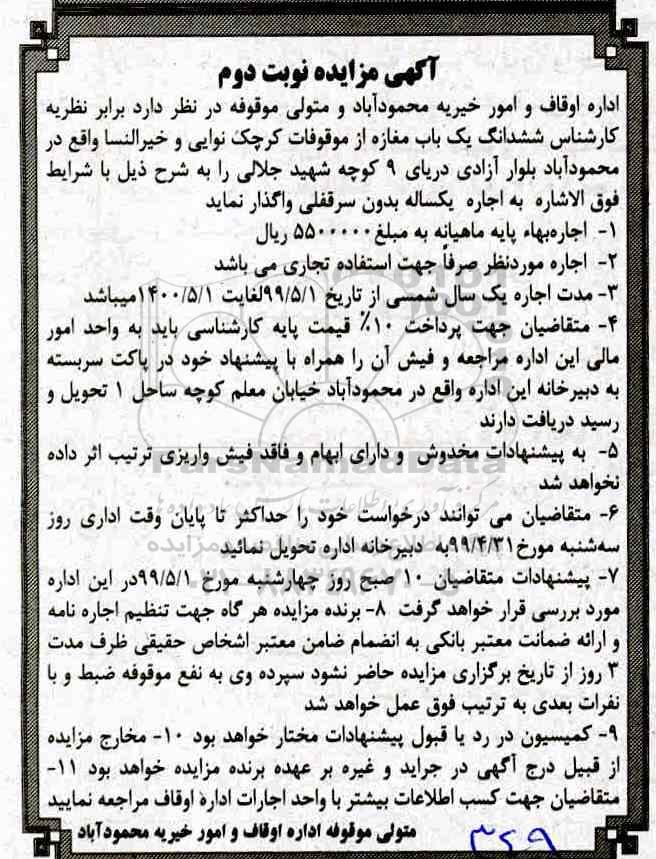 آگهی مزایده نوبت دوم
اداره اوقاف و امور خیریه محمودآباد و متولی موقوفه در نظر دارد برابر نظریه
کارشناس ششدانگ یک باب مغازه از موقوفات کرچک نوایی و خیرالنسا واقع در
محمودآباد بلوار آزادی دریای ۹ کوچه شهید جلالی را به شرح ذیل با شرایط
فوق الاشاره به اجاره یکساله بدون سرقفلی واگذار نماید
۱- اجاره‌بهاء پایه ماهیانه به مبلغ ۵۵۰۰۰۰۰ ریال
۲- اجاره موردنظر صرفاً جهت استفاده تجاری می باشد
۳- مدت اجاره یک سال شمسی از تاریخ ۹۹/۵/۱ لغایت ۱۴۰۰/۵/۱ میباشد
۴- متقاضیان جهت پرداخت ۱۰٪ قیمت پایه کارشناسی باید به واحد امور
مالی این اداره مراجعه و فیش آن را همراه با پیشنهاد خود در پاکت سربسته
به دبیرخانه این اداره واقع در محمودآباد خیابان معلم کوچه ساحل ۱ تحویل و
رسید دریافت دارند
۵- به پیشنهادات مخدوش و دارای ابهام و فاقد فیش واریزی ترتیب اثر داده
نخواهد شد
۶- متقاضیان می توانند درخواست خود را حداکثر تا پایان وقت اداری روز
سه‌شنبه مورخ ۹۹/۴/۳۱ به دبیرخانه اداره تحویل نمائید
۷- پیشنهادات متقاضیان ۱۰ صبح روز چهارشنبه مورخ ۹۹/۵/۱ در این اداره
مورد بررسی قرار خواهد گرفت ۸- برنده مزایده هر گاه جهت تنظیم اجاره نامه
و ارائه ضمانت معتبر بانکی به انضمام ضامن معتبر اشخاص حقیقی ظرف مدت
۳ روز از تاریخ برگزاری مزایده حاضر نشود سپرده وی به نفع موقوفه ضبط و با
نفرات بعدی به ترتیب فوق عمل خواهد شد
۹- کمیسیون در رد یا قبول پیشنهادات مختار خواهد بود ۱۰- مخارج مزایده
از قبیل درج آگهی در جراید و غیره بر عهده برنده مزایده خواهد بود ۱۱-
متقاضیان جهت کسب اطلاعات بیشتر با واحد اجارات اداره اوقاف مراجعه نمایید
متولی موقوفه اداره اوقاف و امور خیریه محمودآباد
۳۶۹
ParsNamadData